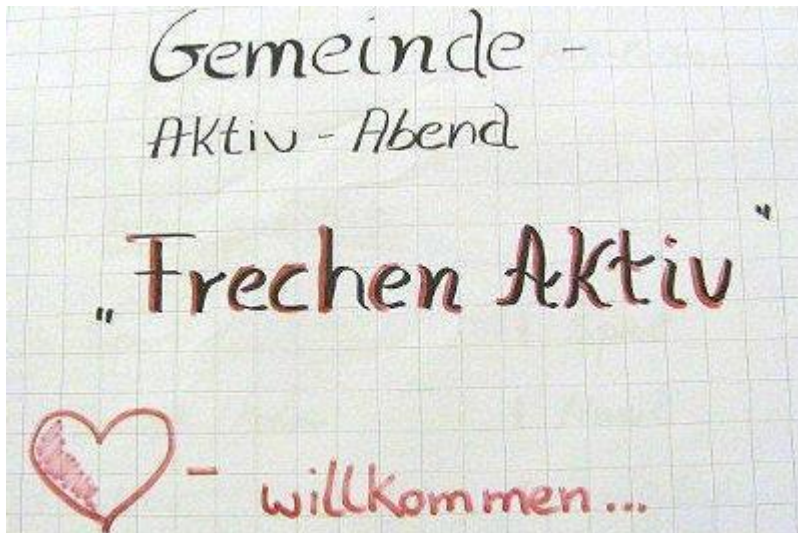 Gemeinde -
Aktiv - Abend
„Frechen Aktiv"
- willkommen...